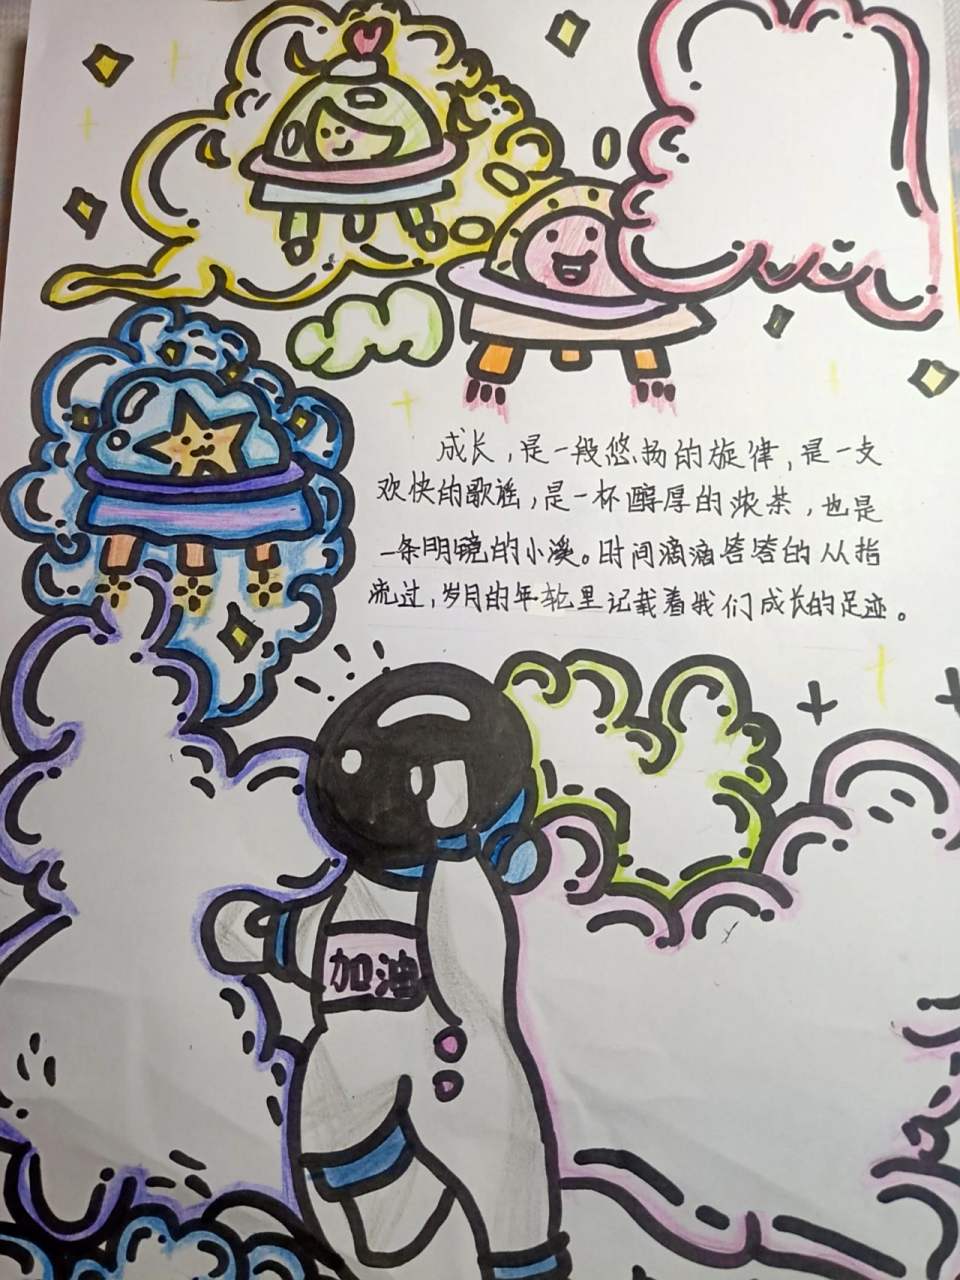 成长，是一段悠扬的旋律，是一支
欢快的歌谣，是一杯醇厚的浓茶，也是
一条明镜的小溪。时间滴滴答答的从指
流过，岁月的年轮里记载着我们成长的足迹。
加油